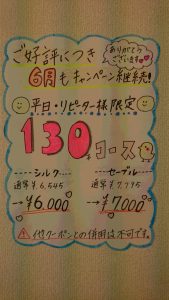 ご好評につき
ありがとうございます
6月もキャンペーン継続!
平日・リピーター様限定
130分コース
シルク
通常¥6,545
→¥6,000
セーブル
通常¥7,795
→¥7,000
他クーポンとの併用は不可です。